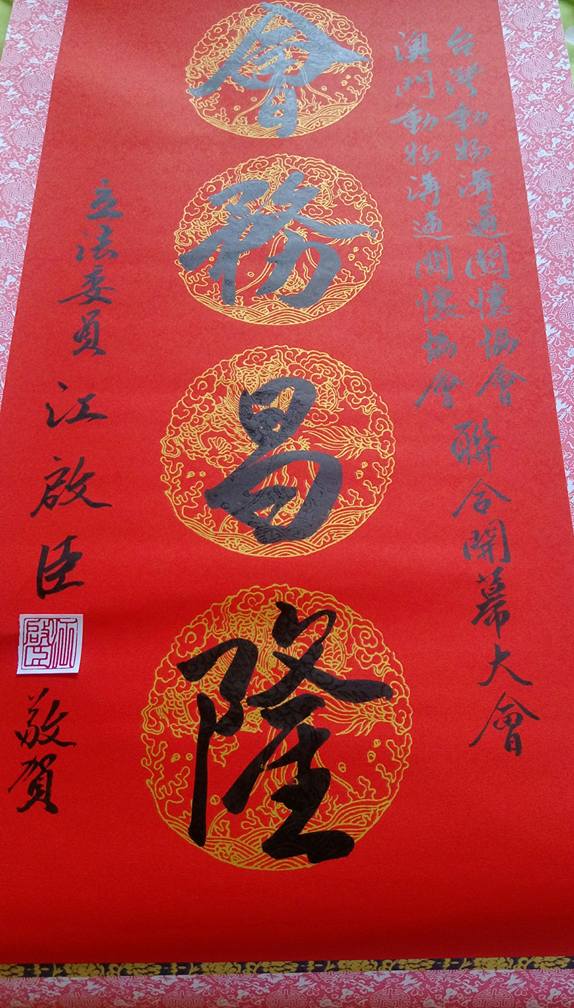 台灣動物溝通關懷協會
澳門動物溝通關懷協會
聯合開幕大會
會務昌隆
立法委員 江啟臣 敬賀
江啟臣